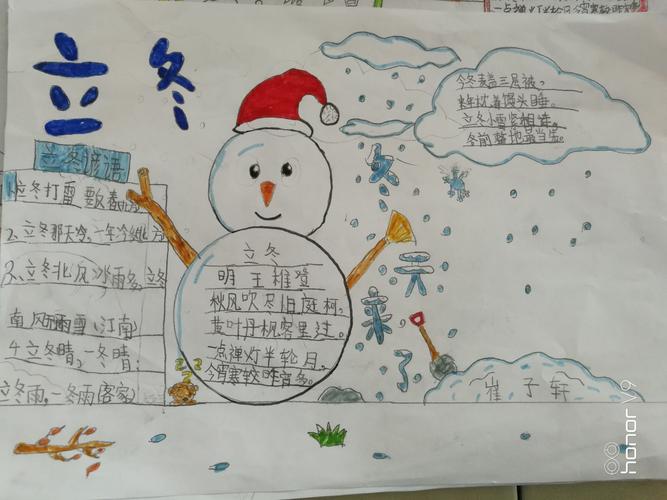 一点禅灯半轮月,今宵寒较昨宵
立冬
今冬麦盖三层被,
来年枕着馒头睡。
立冬小雪紧相连。
冬前整地最当先。
立冬谚语
1、立冬打雷要反春
2、立冬那天冷,一年冷
3、立冬北风冰雨多,立冬
南风雨雪(江南)
4、立冬晴,一冬晴;
立冬雨,一冬雨(客家)
立冬
明 王稚登
秋风吹尽旧庭柯,
黄叶丹枫客里过。
一点禅灯半轮月,
今宵寒较昨宵多。
冬天来了
z z z
崔子轩
honor V9